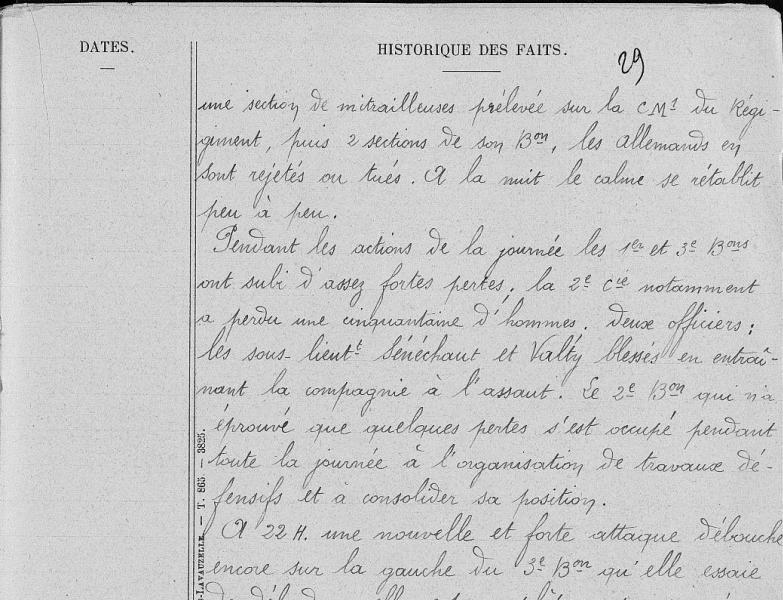 DATES.
HISTORIQUE DES FAITS.
29
une section de mitrailleuses prélevée sur la CM1 du Régi-
giment, puis 2 sections de son Bon, les Allemands en
sont rejetés ou tués. A la nuit le calme se rétablit
peu à peu.
Pendant les actions de la journée les 1er et 3e Bons
ont subi d'assez fortes pertes, la 2e Cie notamment
a perdu une cinquantaine d'hommes. Deux officiers:
les sous-lieutt Sénéchaut et Valty blessés en entraî-
nant la compagnie à l'assaut. Le 2e Bon qui n'a
éprouvé que quelques pertes s'est occupé pendant
toute la journée à l'organisation de travaux dé-
fensifs et à consolider sa position.
A 22 H. une nouvelle et forte attaque débouche
encore sur la gauche du 3e Bon qu'elle essaie
-LAVAUZELLE. — T. 865. — 3825.